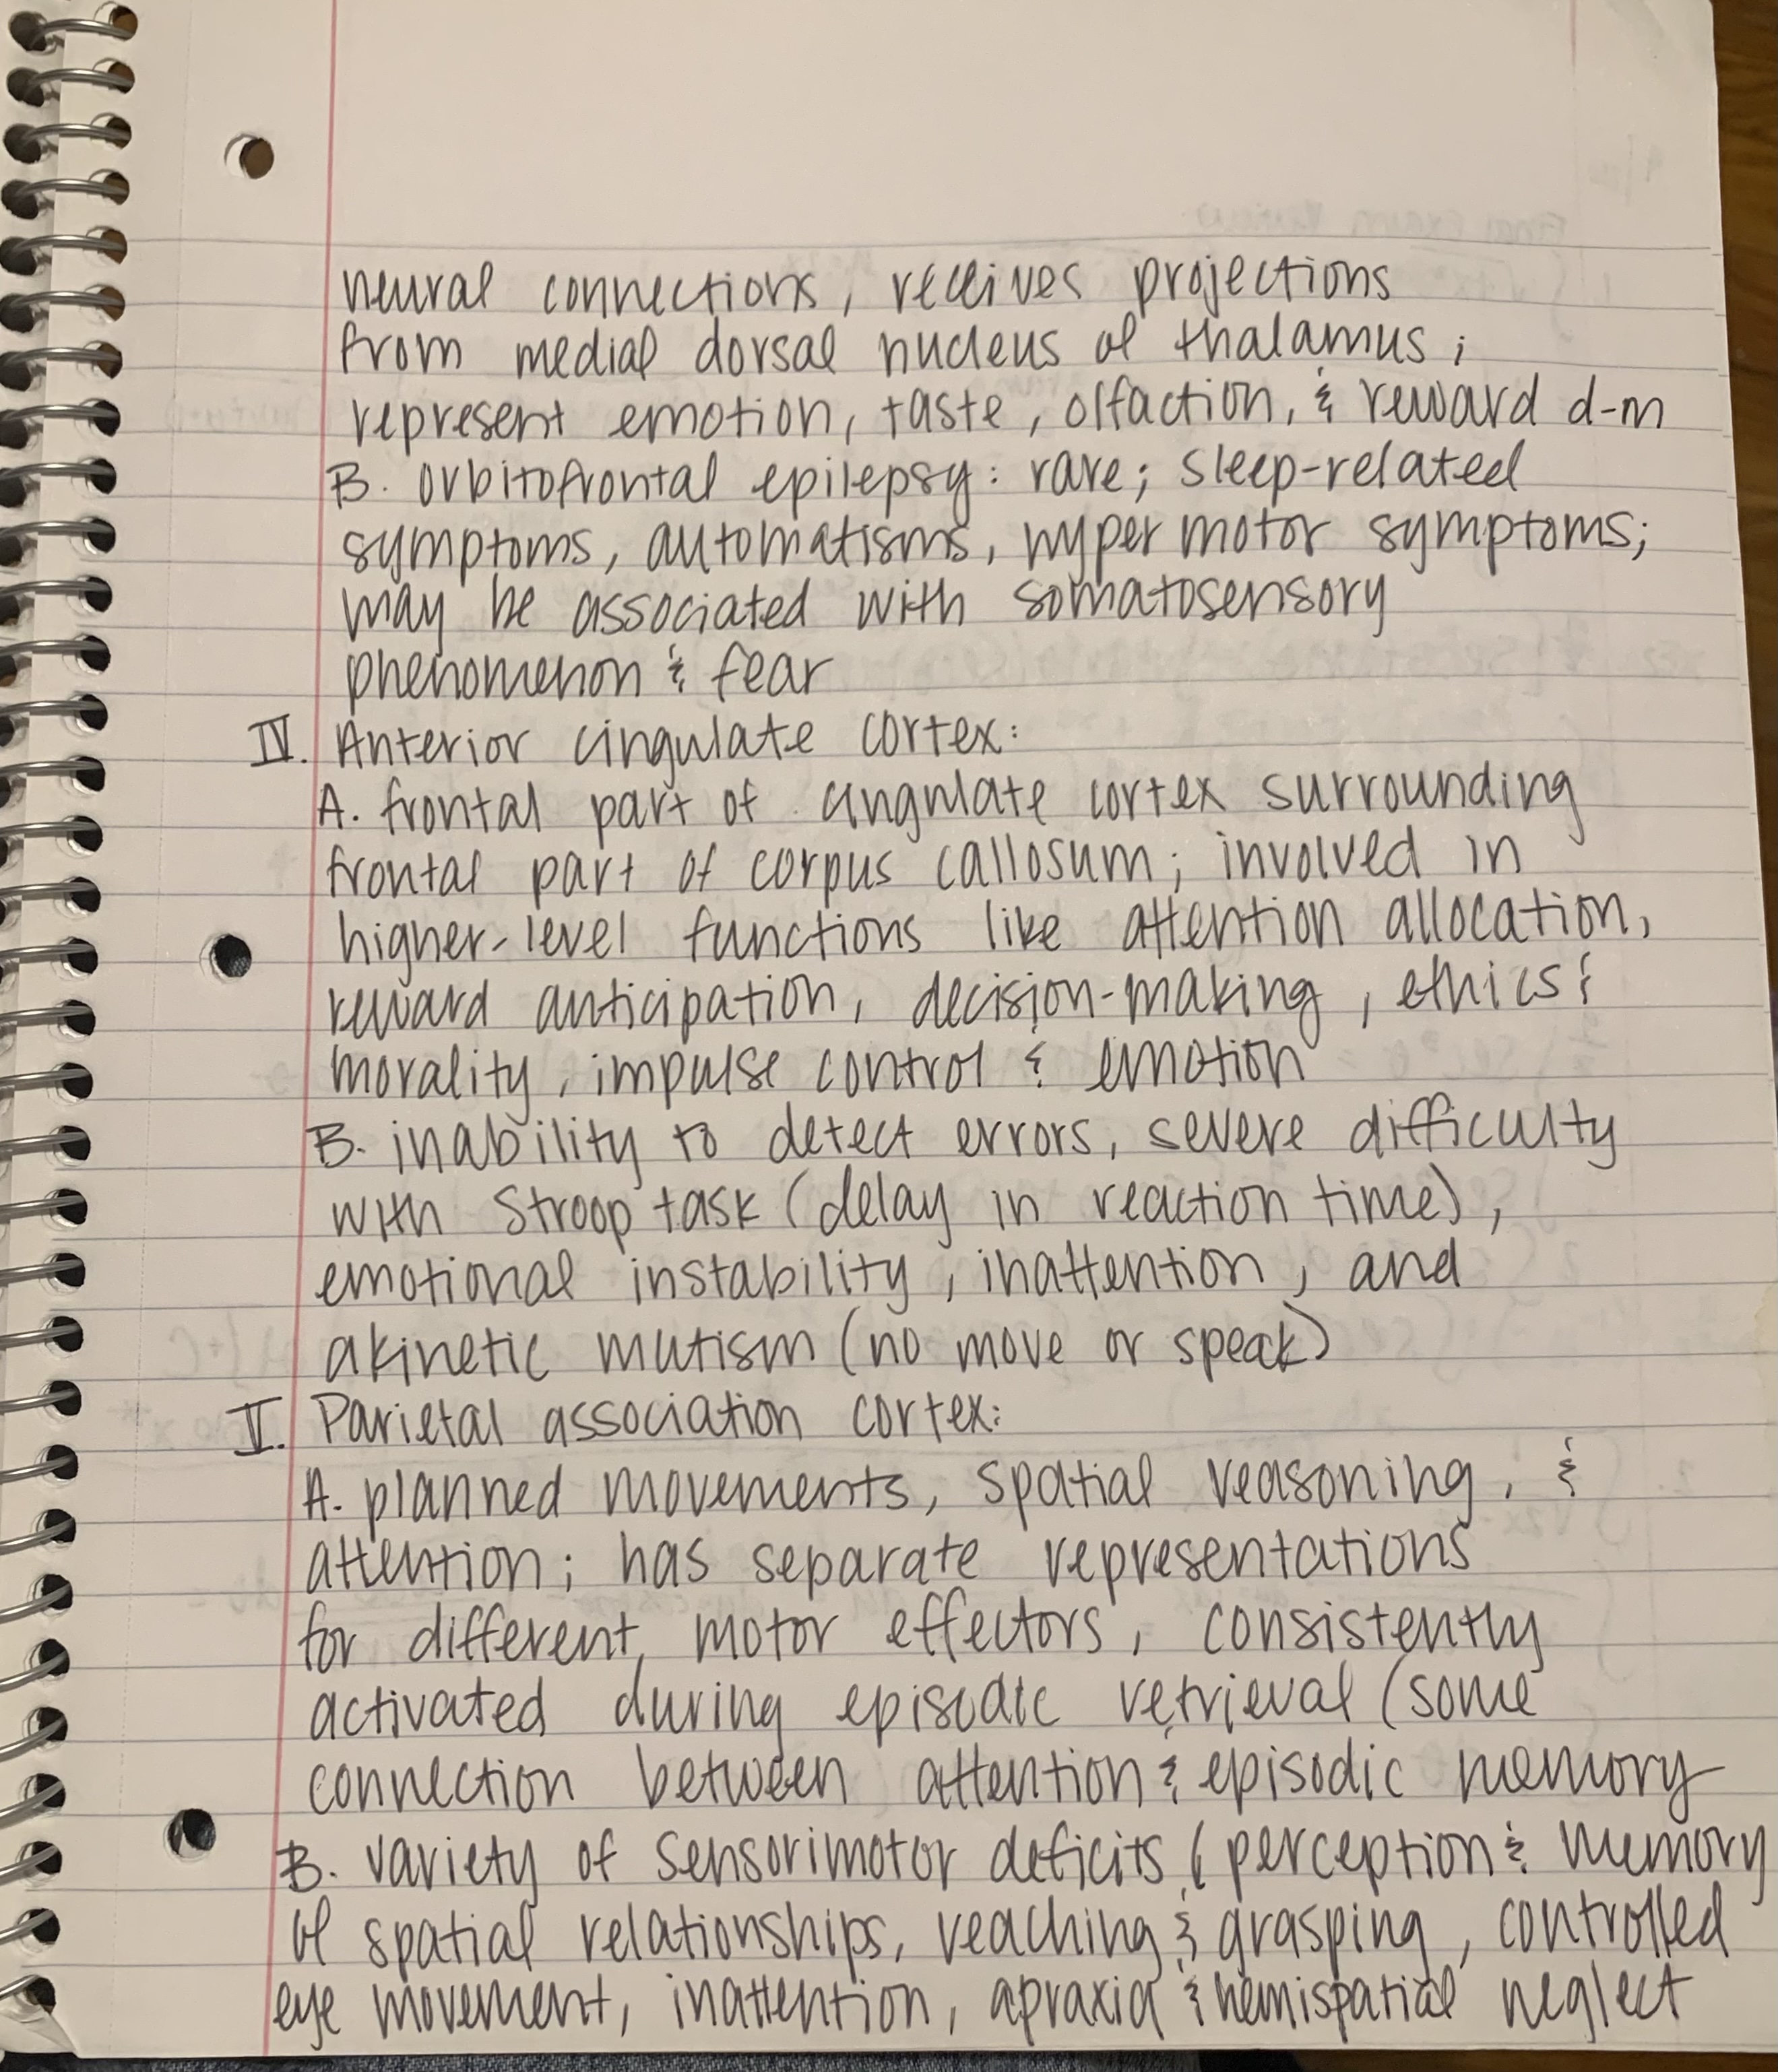 neural connections, receives projections
from medial dorsal nucleus of thalamus;
represent emotion, taste, olfaction, & reward d-m
B. Orbitofrontal epilepsy: rare; sleep-related
symptoms, automatisms, hyper motor symptoms;
may be associated with somatosensory
phenomenon & fear
IV. Anterior cingulate cortex:
A. frontal part of cingulate cortex surrounding
frontal part of corpus callosum; involved in
higher-level functions like attention allocation,
reward anticipation, decision-making, ethics &
morality, impulse control & emotion
B. inability to detect errors, severe difficulty
with Stroop task (delay in reaction time),
emotional instability, inattention, and
akinetic mutism (no move or speak)
V. Parietal association cortex:
A. planned movements, spatial reasoning, &
attention; has separate representations
for different motor effectors, consistently
activated during episodic retrieval (some
connection between attention & episodic memory
B. variety of sensorimotor deficits (perception & memory
of spatial relationships, reaching & grasping, controlled
eye movement, inattention, apraxia & hemispatial neglect